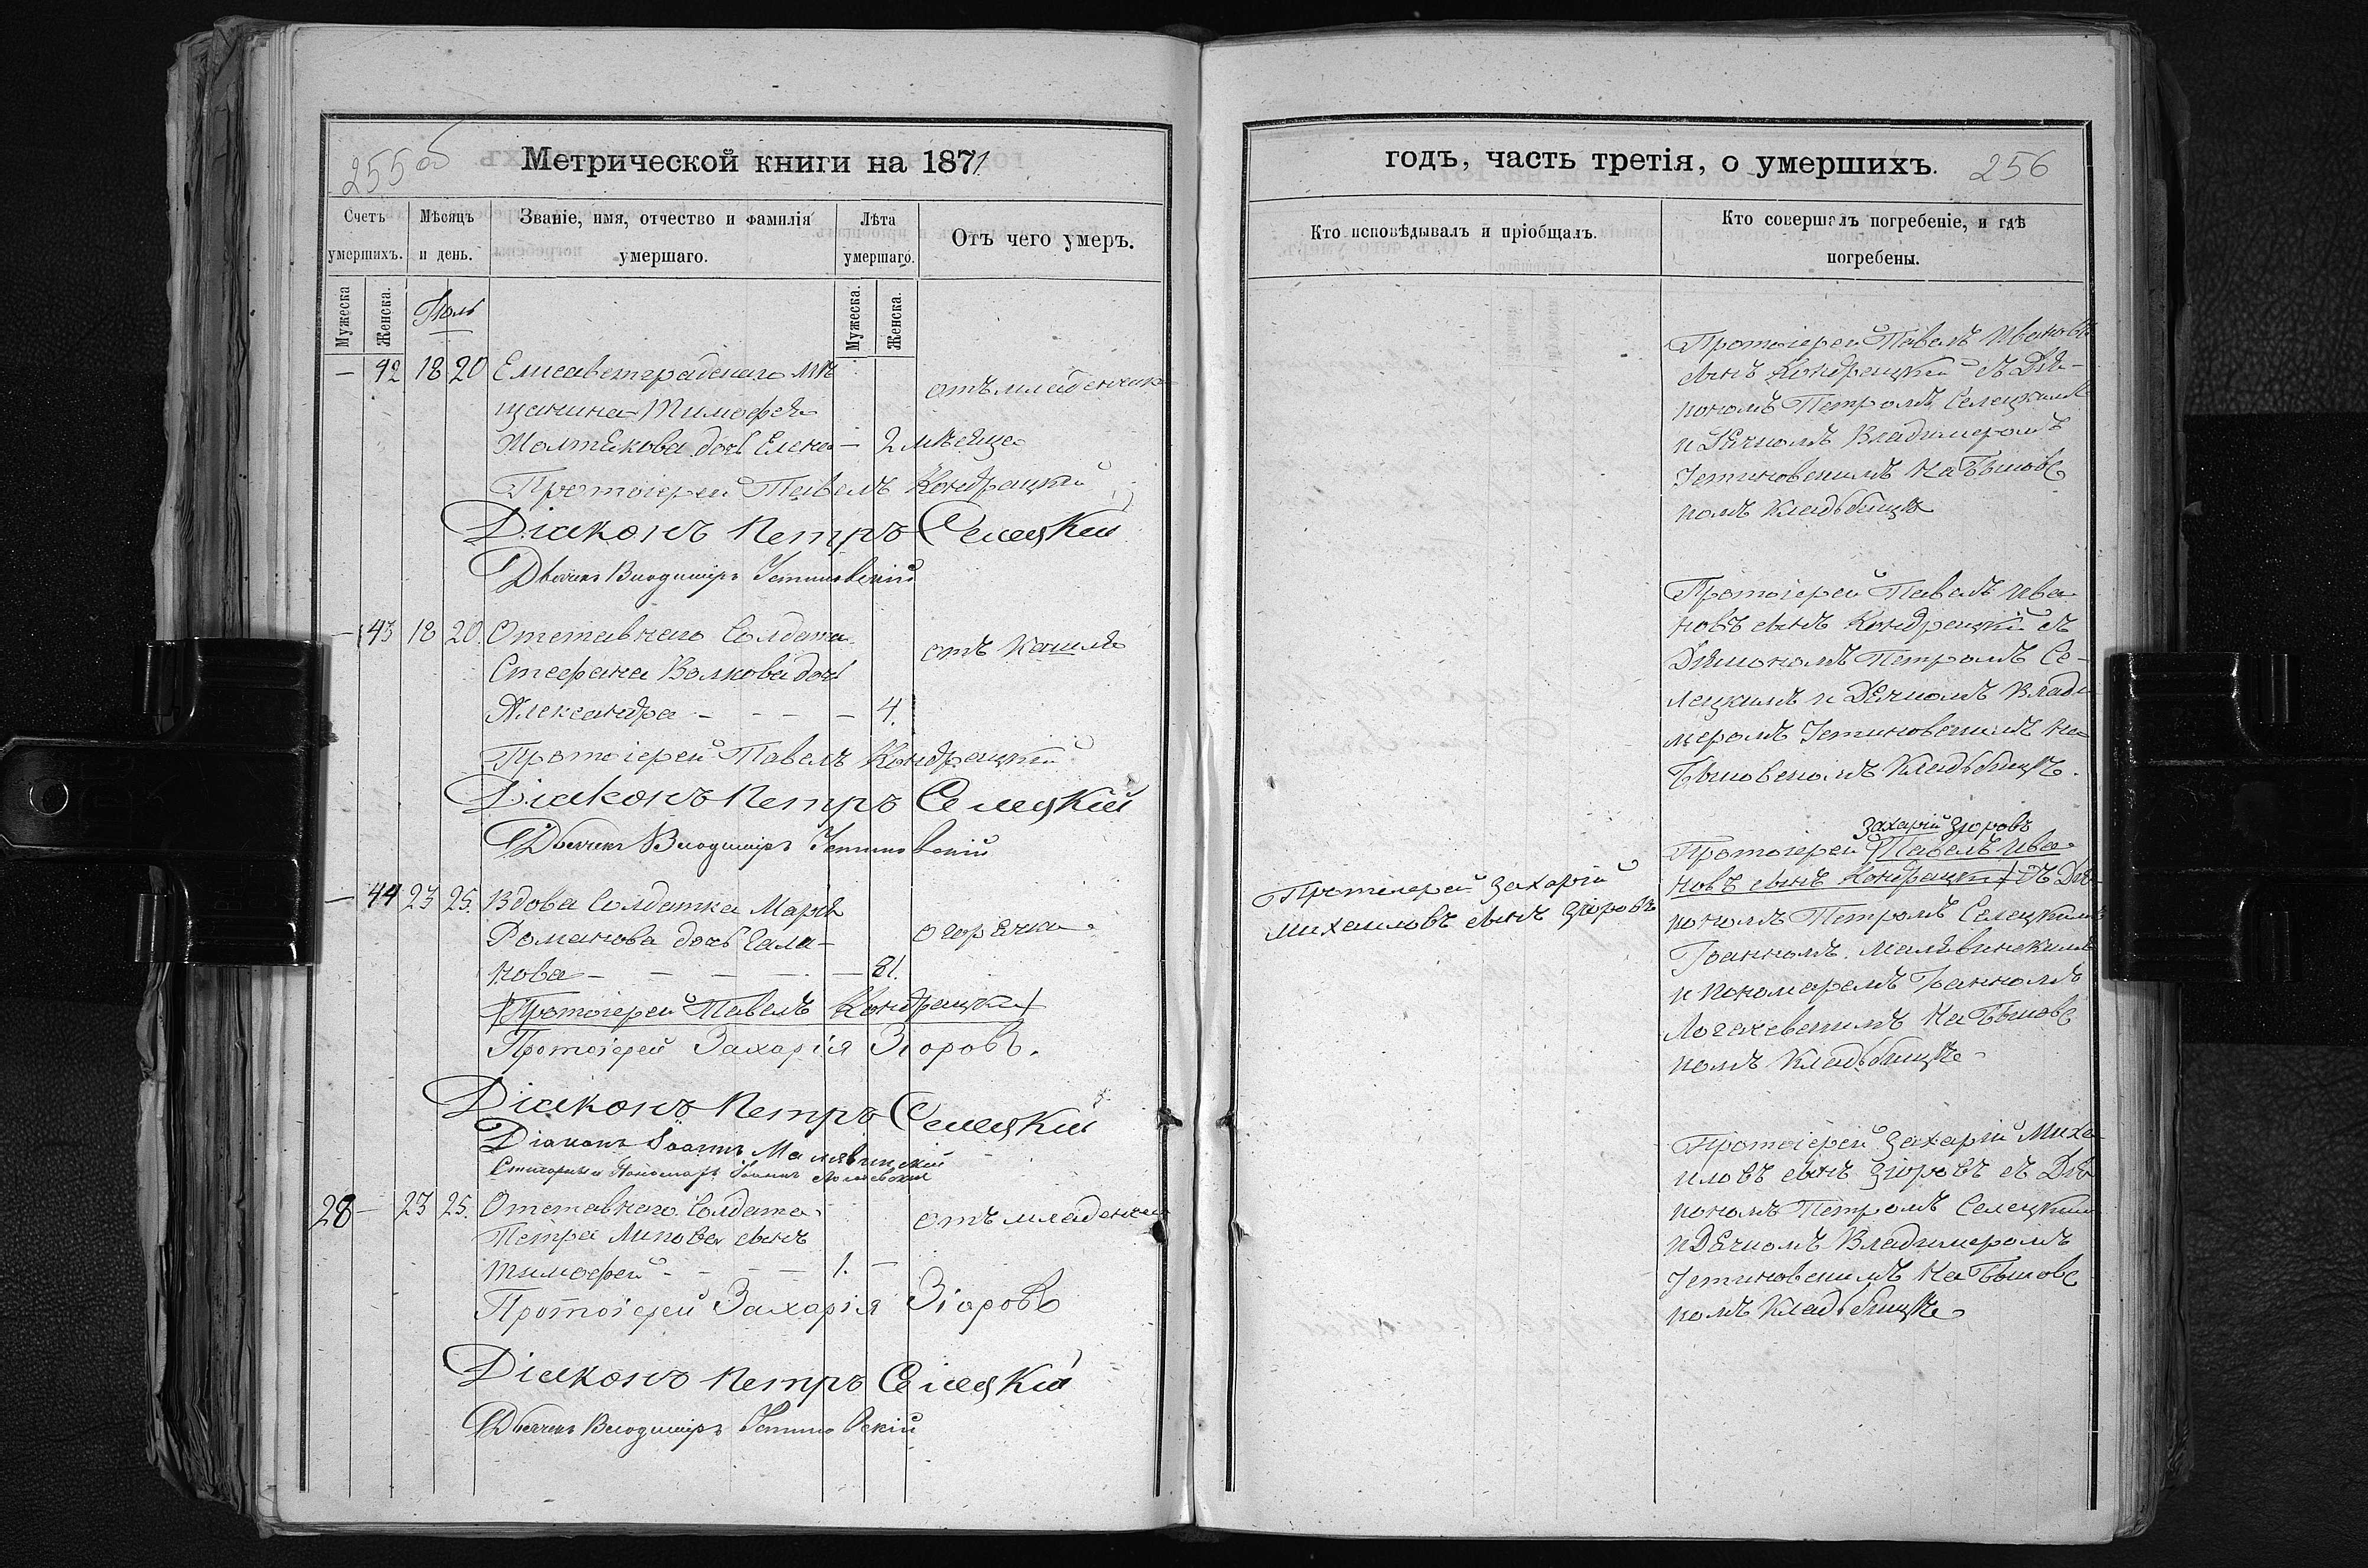 255 об
Метрической книги на 1871
Счетъ умершихъ.
Мѣсяцъ и день.
Званіе, имя, отчество и фамилія умершаго.
Лѣта умершаго.
Отъ чего умеръ.
Мужеска
Женска.
Іюль
Мужеска.
Женска.
— 42 18 20 Елисаветградскаго мѣ
щанина Тимофея
Желтякова дочь Елена — 2 мѣсяца
отъ младенческ
Протоіерей Павелъ Кондрацкій
Діаконъ Петръ Селецкій
Дьячекъ Владиміръ Устиновскій
— 43 18 20. Отставнаго Солдата
Стефана Волкова дочь
Александра - - - — 4.
отъ кашля
Протоіерей Павелъ Кондрацкій
Діаконъ Петръ Селецкій
Дьячекъ Владиміръ Устиновскій
— 44 23 25. Вдова Солдатка Марія
Романова дочь Гала-
нова — — — — — 81.
горячка
Протоіерей Павелъ Кондрацкій
Протоіерей Захарія Зіоровъ.
Діаконъ Петръ Селецкій
Діаконъ Іоаннъ Малявинскій
Пономарь Іоаннъ
28 — 23 25. Отставнаго Солдата
Петра Липова сынъ
Тимофей - - — — 1. —
отъ младенческ
Протоіерей Захарія Зіоровъ
Діаконъ Петръ Селецкій
Дьячекъ Владиміръ Устиновскій
годъ, часть третія, о умершихъ.
256
Кто исповѣдывалъ и пріобщалъ.
Кто совершалъ погребеніе, и гдѣ погребены.
Протоіерей Павелъ Ивановъ
сынъ Кондрацкій съ Діа-
кономъ Петромъ Селецкимъ
и Дячкомъ Владимеромъ
Устиновскимъ на Быковс
комъ кладбищѣ
Протоіерей Павелъ Ива
новъ сынъ Кондрацкій съ
Діякономъ Петромъ Се-
лецкимъ и Дячкомъ Влади
меромъ Устиновскимъ на
Быковскомъ кладбищѣ.
Протоіерей Захарій
Михаиловъ сынъ Зіоровъ
Захарій Зіоровъ
Протоіерей Павелъ Ива
новъ сынъ Кондрацкій съ Діа
кономъ Петромъ Селецкимъ
Іоанномъ Малявинскимъ
и пономаремъ Іоанномъ
на Быковс
комъ кладбищѣ
Протоіерей Захарій Миха
иловъ сынъ Зіоровъ съ Діа
кономъ Петромъ Селецкимъ
и Дячкомъ Владимеромъ
Устиновскимъ на Быковс
комъ кладбищѣ